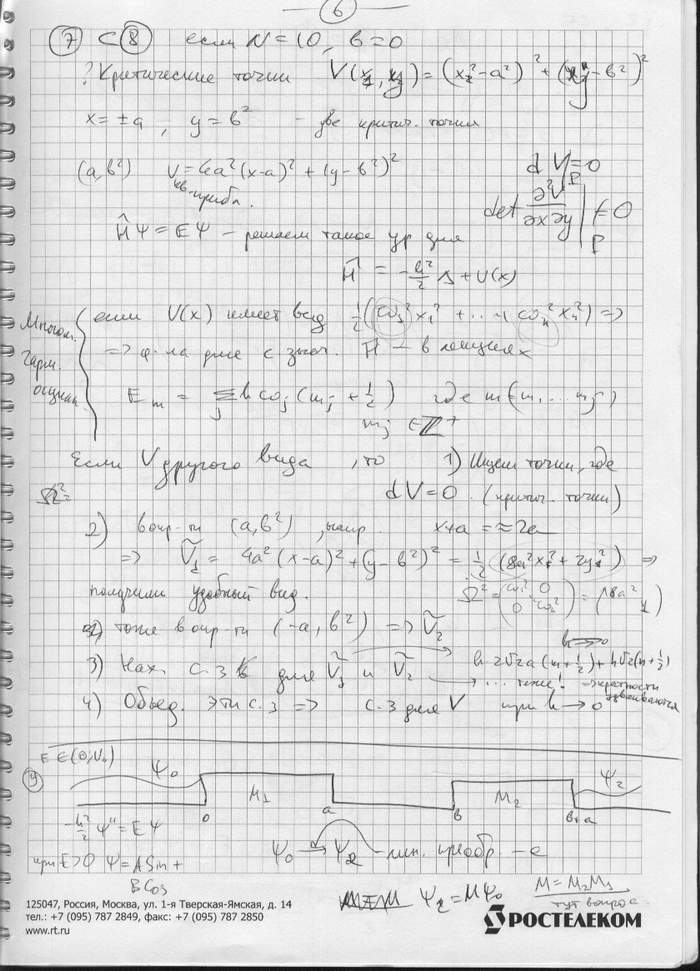 6
7 ⊂ 8 если N=10, b=0
? Критические точки V(x, y) = (x²-a²)² + (y-b²)²
x = ±a, y = b² - две критич. точки
(a, b²) V = 4a²(x-a)² + (y-b²)² dV=0
кв. прибл. P
det ∂²V/∂x∂y |P ≠ 0
ĤΨ = EΨ - решаем такое ур для
Ĥ = -h²/2 Δ + U(x)
Многом. гарм. осцил.
если V(x) имеет вид ½(ω₁²x₁² + ... + ωₙ²xₙ²) ⇒
⇒ ф-ла для с.знач. Ĥ - в лекциях
Eₘ = Σⱼ h ωⱼ (mⱼ + ½) где m(m₁...mⱼ)
mⱼ ∈ Z⁺
Если V другого вида, то 1) Ищем точки, где
dV=0. (критич. точки)
Ω²=
2) в окр-ти (a, b²), напр. x+a ≈ 2a
⇒ Ṽ₁ = 4a²(x-a)² + (y-b²)² = ½(8a²x₁² + 2y₁²) ⇒
получили удобный вид. Ω² = (ω₁² 0 0 ω₂²) = (8a²
тоже в окр-ти (-a, b²) ⇒ Ṽ₂
h→0
3) Нах. с.з для Ṽ₁ и Ṽ₂ h 2√2a(m+½) + h√2(n+½)
... тоже! → кратности удваиваются
4) Объед. эти с.з ⇒ с.з для V при h→0
E ∈ (0, V₀)
9 Ψ₀ M₁ M₂ Ψ₂
0 a b b+a
-h²/2 Ψ'' = EΨ
Ψ₀ → Ψ₂ - лин. преобр. - е
при E>0 Ψ = A Sin +
B Cos
Ψ₂ = MΨ₀ M = M₂M₁
тут вопрос
125047, Россия, Москва, ул. 1-я Тверская-Ямская, д. 14
тел.: +7 (095) 787 2849, факс: +7 (095) 787 2850
www.rt.ru
РОСТЕЛЕКОМ